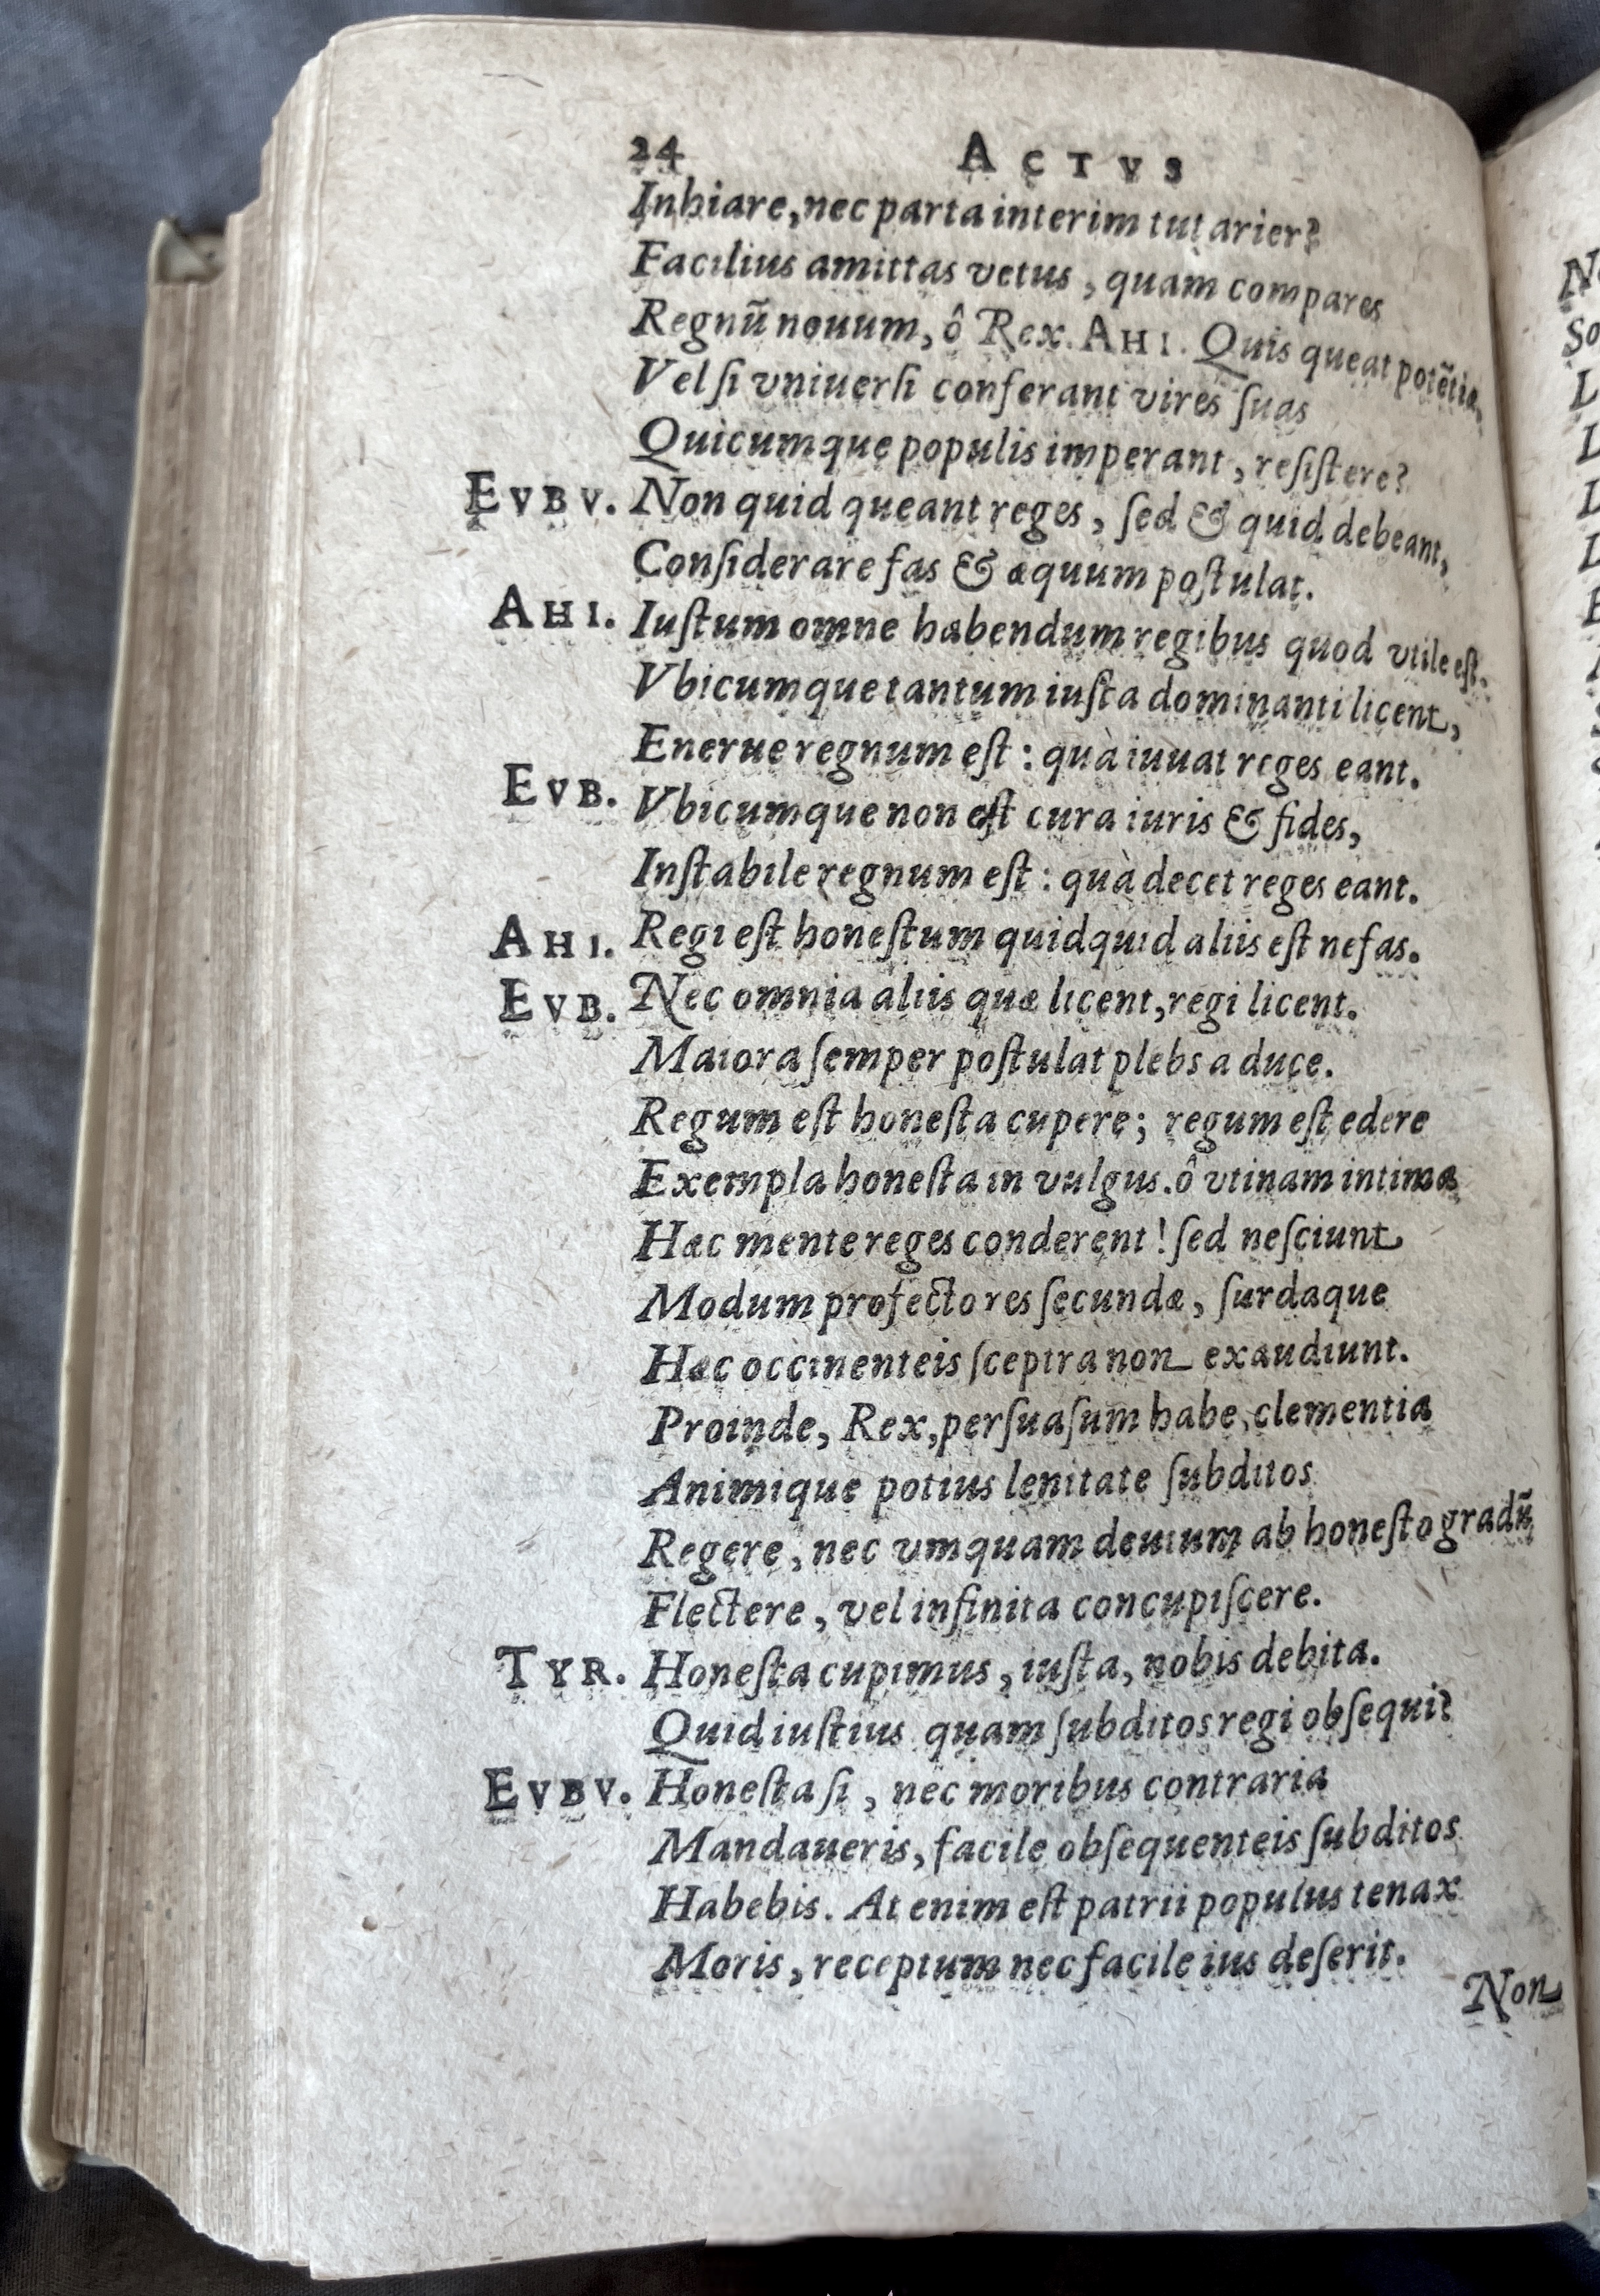 24 ACTVS
Inhiare, nec parta interim tutarier?
Facilius amittas vetus, quam compares
Regnũ nouum, ô Rex. AHI. Quis queat potẽtiæ,
Vel si vniuersi conferant vires suas
Quicumque populis imperant, resistere?
EVBV. Non quid queant reges, sed & quid debeant,
Considerare fas & æquum postulat.
AHI. Iustum omne habendum regibus quod vtile est.
Vbicumque tantum iusta dominanti licent,
Enerue regnum est: quà iuuat reges eant.
EVB. Vbicumque non est cura iuris & fides,
Instabile regnum est: quà decet reges eant.
AHI. Regi est honestum quidquid aliis est nefas.
EVB. Nec omnia aliis quæ licent, regi licent.
Maiora semper postulat plebs a duce.
Regum est honesta cupere; regum est edere
Exempla honesta in vulgus. ô vtinam intima
Hac mente reges conderent! sed nesciunt
Modum profecto res secundæ, surdaque
Hæc occinenteis sceptra non exaudiunt.
Proinde, Rex, persuasum habe, clementia
Animique potius lenitate subditos
Regere, nec vmquam deuium ab honesto gradũ
Flectere, vel infinita concupiscere.
TYR. Honesta cupimus, iusta, nobis debita.
Quid iustius quam subditos regi obsequi?
EVBV. Honesta si, nec moribus contraria
Mandaueris, facile obsequenteis subditos
Habebis. At enim est patrii populus tenax
Moris, receptum nec facile ius deserit.
Non